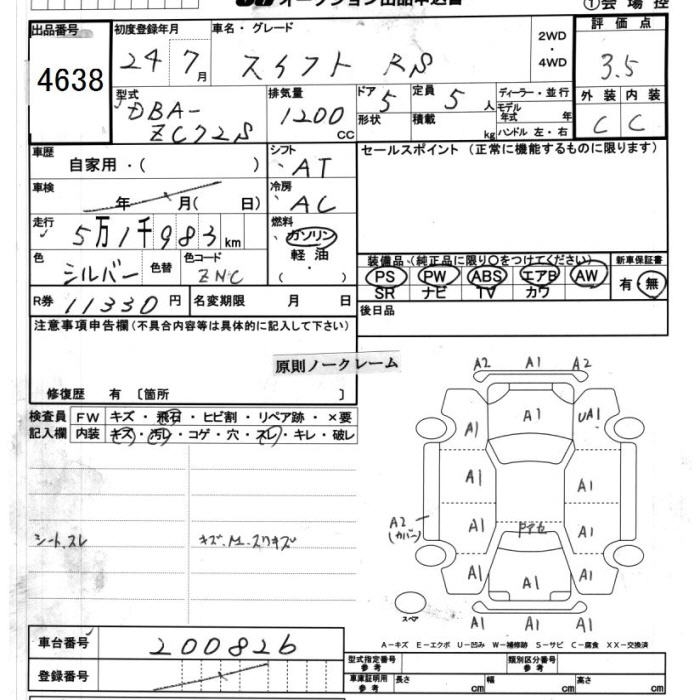 オークション出品申込書
①会場控
出品番号 4638
初度登録年月 24 7月
車名・グレード スイフト RS
2WD・4WD
評価点 3.5
外装 C 内装 C
型式 DBA-ZC72S
排気量 1200 CC
ドア 5 形状
定員 5人 積載 kg
ディーラー・並行
モデル年式 年
ハンドル 左・右
車歴 自家用・( )
シフト AT
セールスポイント (正常に機能するものに限ります)
車検 年 月( 日)
冷房 AC
走行 5万1千983km
燃料 ガソリン 軽油 ( )
色 シルバー 色替 色コード ZNC
装備品(純正品に限り○をつけてください) 新車保証書
PS PW ABS エアB AW 有・無
SR ナビ TV カワ
R券 11330円 名変期限 月 日
後日品
注意事項申告欄(不具合内容等は具体的に記入して下さい)
原則ノークレーム
修復歴 有 〔箇所 〕
検査員 FW キズ・飛石・ヒビ割・リペア跡・×要
記入欄 内装 キズ・汚レ・コゲ・穴・スレ・キレ・破レ
シートスレ
A2 A1 A2
A1 A1 UA1
A1 A1
A2 (カバー) A1 A1
A1 A1 A1
A1 A1 A1
スペア
A-キズ E-エクボ U-凹み W-補修跡 S-サビ C-腐食 XX-交換済
車台番号 200826
登録番号
型式指定番号 参考 類別区分番号 参考
車庫証明用 参考 長さ cm 幅 cm 高さ cm